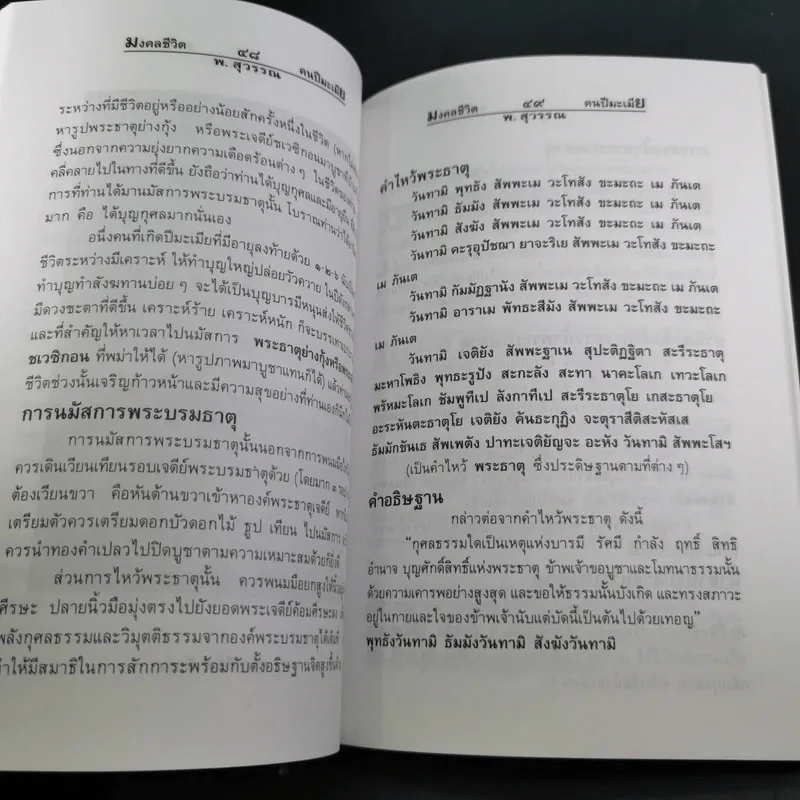 มงคลชีวิต ๔๘ คนปีมะเมีย
พ. สุวรรณ
ระหว่างที่มีชีวิตอยู่หรืออย่างน้อยสักครั้งหนึ่งในชีวิต
หารูปพระธาตุย่างกุ้ง หรือพระเจดีย์ชเวซิกอนมาบูชา
ซึ่งนอกจากความยุ่งยากความเดือดร้อนต่าง ๆ ในชีวิต
คลี่คลายไปในทางที่ดีขึ้น ยังถือว่าท่านได้บุญกุศลและมีอายุ
การที่ท่านได้มานมัสการพระบรมธาตุนั้น โบราณท่านว่า
มาก คือ ได้บุญกุศลมากนั่นเอง
อนึ่งคนที่เกิดปีมะเมียที่มีอายุลงท้ายด้วย ๑-๒-๖
ชีวิตระหว่างมีเคราะห์ ให้ทำบุญใหญ่ปล่อยวัวควาย
ทำบุญทำสังฆทานบ่อย ๆ จะได้เป็นบุญบารมีหนุนส่งให้
มีดวงชะตาที่ดีขึ้น เคราะห์ร้าย เคราะห์หนัก ก็จะบรรเทา
และที่สำคัญให้หาเวลาไปนมัสการ พระธาตุย่างกุ้งหรือ
ชเวซิกอน ที่พม่าให้ได้ (หารูปภาพมาบูชาแทนก็ได้) แล้ว
ชีวิตช่วงนั้นเจริญก้าวหน้าและมีความสุขอย่างที่ท่านเอง
การนมัสการพระบรมธาตุ
การนมัสการพระบรมธาตุนั้นนอกจากการพนมมือ
ควรเดินเวียนเทียนรอบเจดีย์พระบรมธาตุด้วย (โดยมาก ๓ รอบ)
ต้องเวียนขวา คือหันด้านขวาเข้าหาองค์พระธาตุเจดีย์
เตรียมตัวควรเตรียมดอกบัวดอกไม้ ธูป เทียน ไปนมัสการ
ควรนำทองคำเปลวไปปิดบูชาตามความเหมาะสมด้วยก็ยิ่งดี
ส่วนการไหว้พระธาตุนั้น ควรพนมมือยกสูงให้
ศีรษะ ปลายนิ้วมือมุ่งตรงไปยังยอดพระเจดีย์ค้อมศีรษะลง
พลังกุศลธรรมและวิมุตติธรรมจากองค์พระบรมธาตุได้
ทำให้มีสมาธิในการสักการะพร้อมกับตั้งอธิษฐานจิต
มงคลชีวิต ๔๙ คนปีมะเมีย
พ. สุวรรณ
คำไหว้พระธาตุ
วันทามิ พุทธัง สัพพะเม วะโทสัง ขะมะถะ เม ภันเต
วันทามิ ธัมมัง สัพพะเม วะโทสัง ขะมะถะ เม ภันเต
วันทามิ สังฆัง สัพพะเม วะโทสัง ขะมะถะ เม ภันเต
วันทามิ คะรุอุปัชฌา ยาจะริเย สัพพะเม วะโทสัง ขะมะถะ
เม ภันเต
วันทามิ กัมมัฏฐานัง สัพพะเม วะโทสัง ขะมะถะ เม ภันเต
วันทามิ อาราเม พัทธะสีมัง สัพพะเม วะโทสัง ขะมะถะ
เม ภันเต
วันทามิ เจติยัง สัพพะฐาเน สุปะติฏฐิตา สะรีระธาตุ
มะหาโพธิง พุทธะรูปัง สะกะลัง สะทา นาคะโลเก เทวะโลเก
พรัหมะโลเก ชัมพูทีเป ลังกาทีเป สะรีระธาตุโย เกสะธาตุโย
อะระหันตะธาตุโย เจติยัง คันธะกุฏิง จะตุราสีติสะหัสเส
ธัมมักขันเธ สัพเพตัง ปาทะเจติยัญจะ อะหัง วันทามิ สัพพะโสฯ
(เป็นคำไหว้ พระธาตุ ซึ่งประดิษฐานตามที่ต่าง ๆ)
คำอธิษฐาน
กล่าวต่อจากคำไหว้พระธาตุ ดังนี้
“กุศลธรรมใดเป็นเหตุแห่งบารมี รัศมี กำลัง ฤทธิ์ สิทธิ
อำนาจ บุญศักดิ์สิทธิ์แห่งพระธาตุ ข้าพเจ้าขอบูชาและโมทนาธรรมนั้น
ด้วยความเคารพอย่างสูงสุด และขอให้ธรรมนั้นบังเกิด และทรงสภาวะ
อยู่ในกายและใจของข้าพเจ้านับแต่บัดนี้เป็นต้นไปด้วยเทอญ”
พุทธังวันทามิ ธัมมังวันทามิ สังฆังวันทามิ